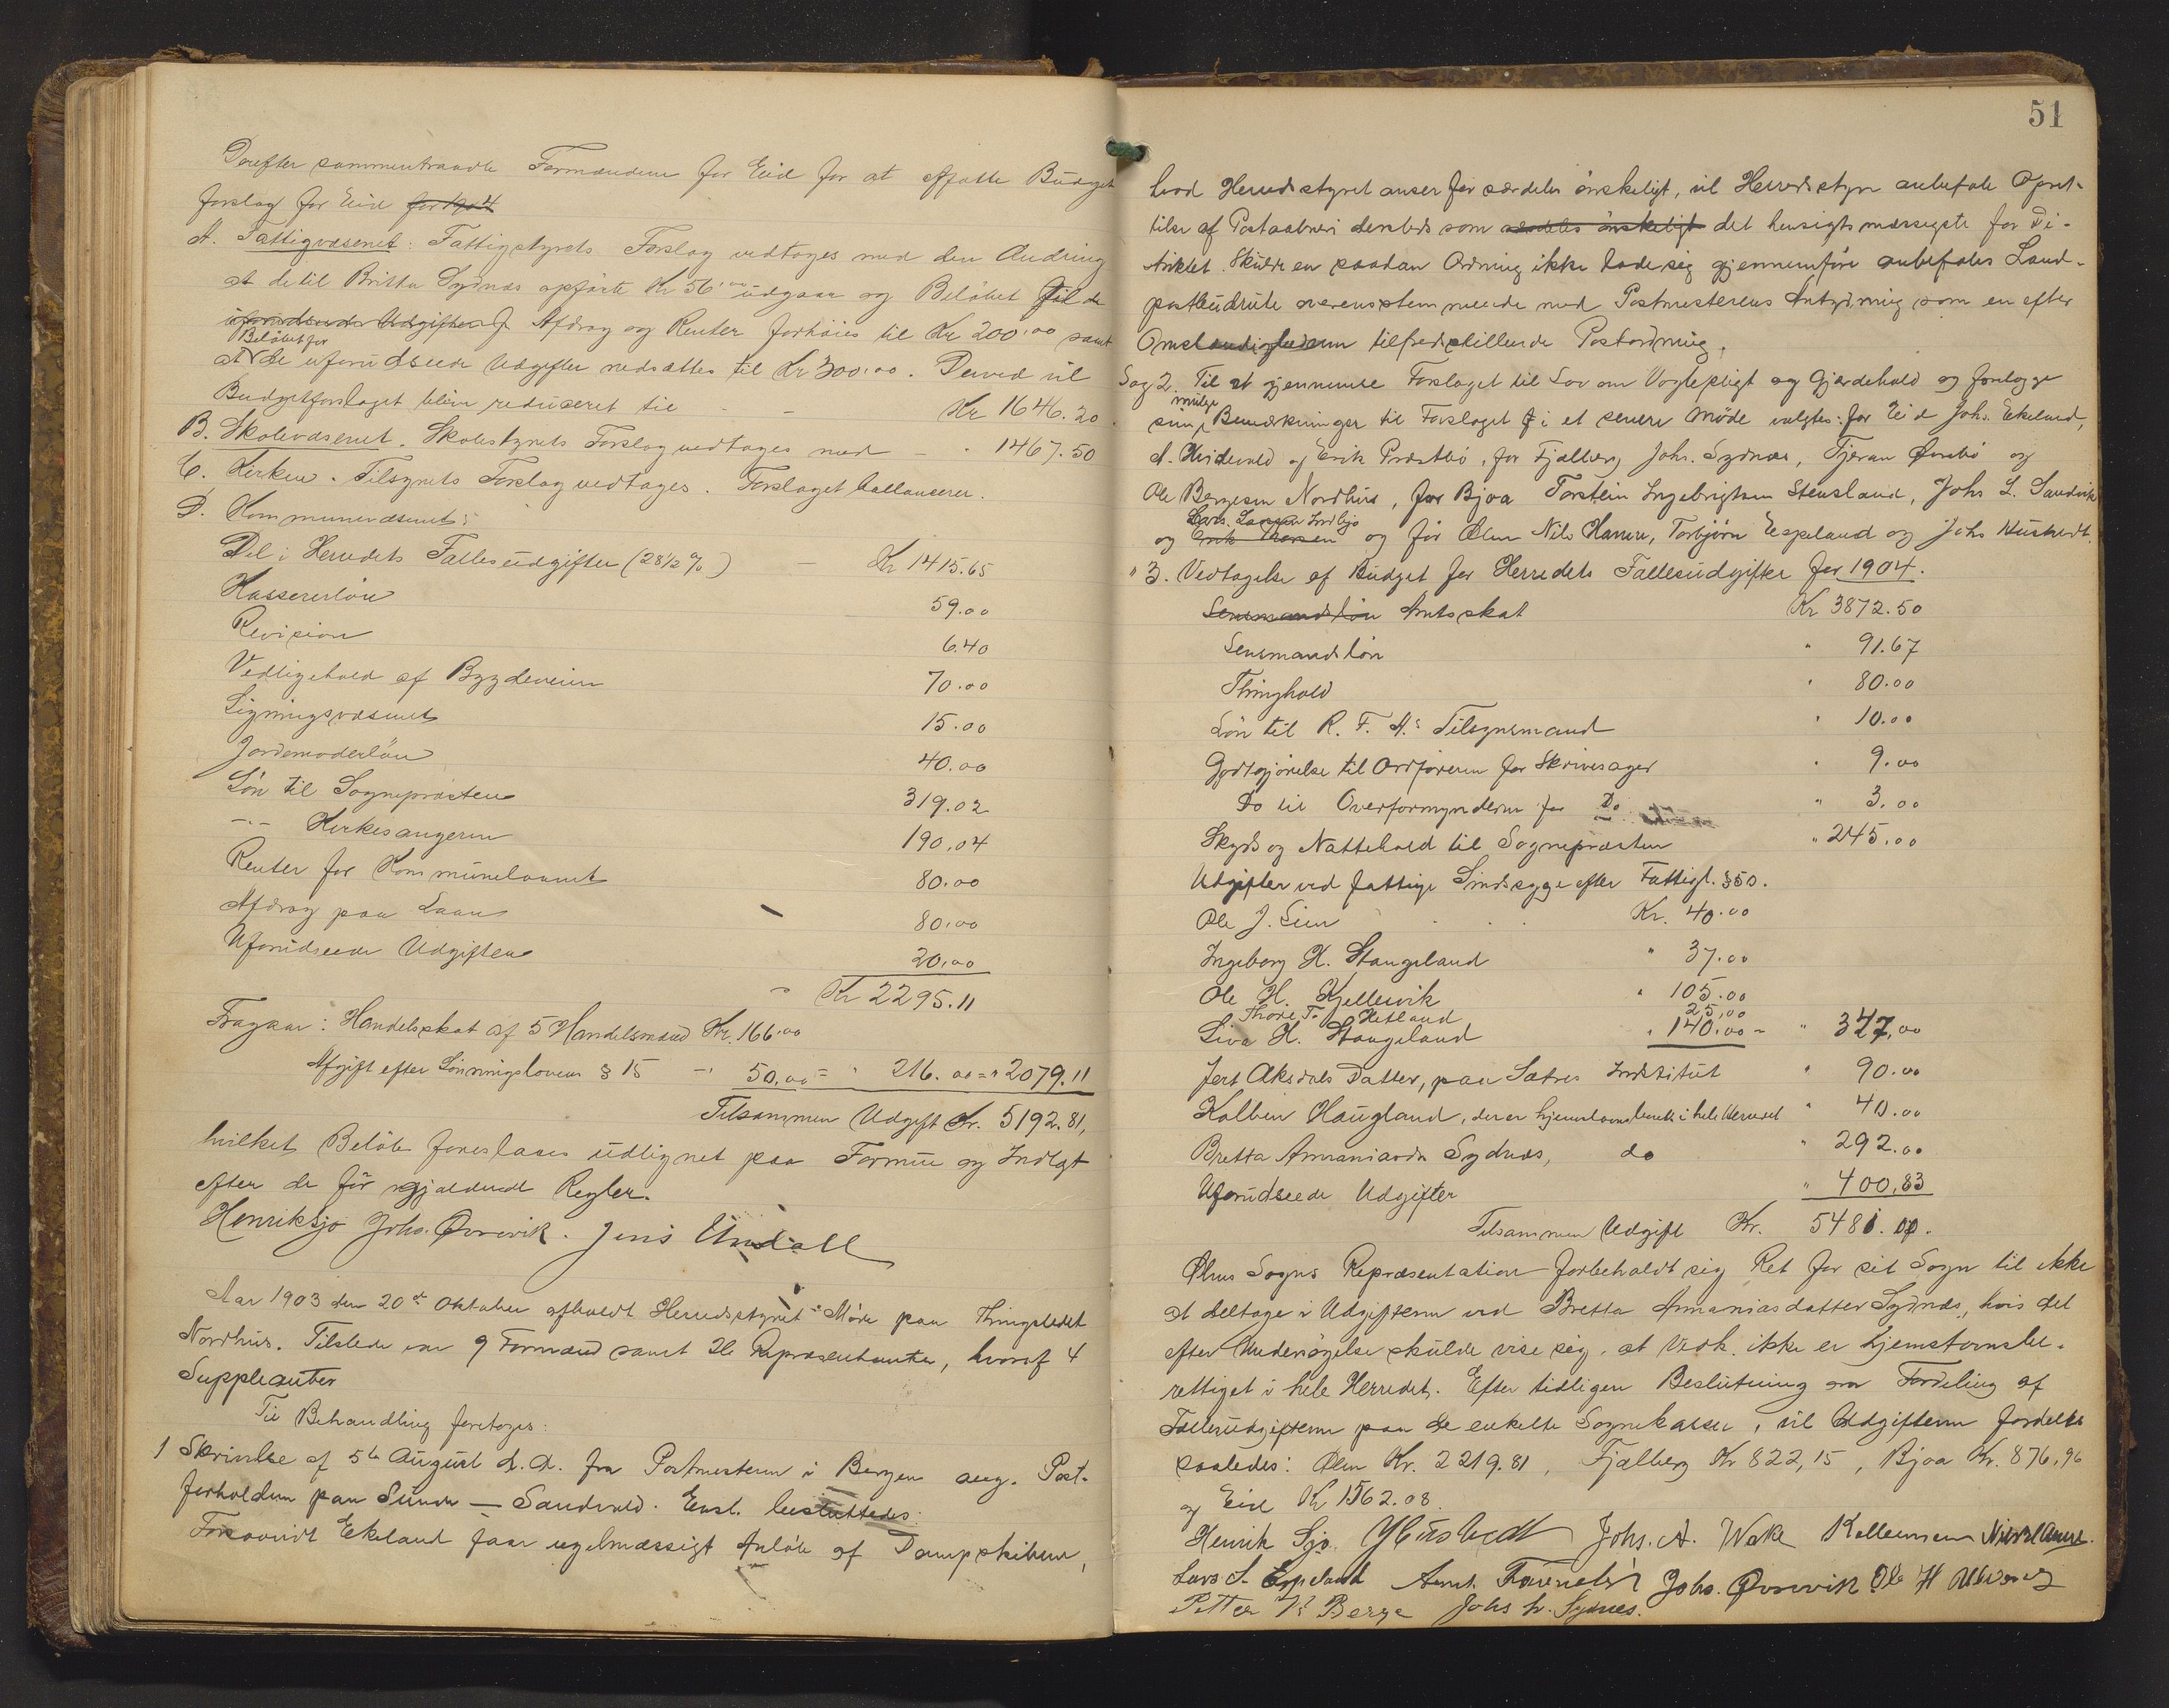 Derefter sammentraadte Formændene for Eid for at affatte Budget
forslag for Eid for 1904
A. Fattigvæsenet: Fattigstyrets Forslag vedtoges med den Ændring
at de til Britha Sydnæs opførte Kr 56.00 udgaar og Beløbet til de
uforudseede Udgifter f. Afdrag og Renter forhøies til Kr 200.00 samt
Beløbet for
at de uforudseede Udgifter nedsættes til Kr 300.00. Derved vil
Budgetforslaget blive reduceret til - - Kr 1646.20
B. Skolevæsenet. Skolestyrets Forslag vedtages med - " 1467.50
C. Kirken. Tilsynets Forslag vedtages. Forslaget ballancerer.
D. Kommunevæsenet:
Del i Herredets Fællesudgifter (28½ %) - Kr 1415.65
Kassererløn 59.00
Revision 6.40
Vedligehold af Bygdeveien 70.00
Ligningsvæsenet 15.00
Jordemoderløn 40.00
Løn til Sognepræsten 319.02
-"- Kirkesangeren 190.04
Renter for Kommunelaanet 80.00
Afdrag paa Laan 80.00
Uforudseede Udgifter 20.00
" Kr 2295.11
Fragaar: Handelsskat af 5 Handelsmænd Kr. 166.00
Afgift efter Lønningslovens § 15 -" 50.00 = " 216.00 = " 2079.11
Tilsammen Udgift Kr. 5192.81,
hvilket Beløb foreslaaes udlignet paa Formue og Indtægt
efter de før gjældende Regler.
Henrik Sjo Johs. Øvrevik. Jens Undall
Aar 1903 den 20de Oktober afholdt Herredsstyret Møde paa Thingstedet
Nordhus. Tilstede var 9 Formænd samt 26 Repræsentanter, hvoraf 4
Suppleanter
Til Behandling foretoges:
1 Skrivelse af 5te August d. A. fra Postmesteren i Bergen ang. Post-
forholdene paa Sunde — Sandvold. Enst. besluttedes:
Forsaavidt Ekeland faar regelmæssigt Anløb af Dampskibene,
51
hvad Herredsstyret anser for særdeles ønskeligt, vil Herredsstyre anbefale Opret-
telse af Postaabneri dersteds som særdeles ønskeligt det hensigtsmæssigste for Di-
striktet. Skulde en saadan Ordning ikke lade sig gjennemføre anbefales Land-
postbudrute overensstemmende med Postmesterens Antydning som en efter
Omstændighederne tilfredsstillende Postordning.
Sag 2. Til at gjennemse Forslaget til Lov om Vogtepligt og Gjerdehold og forelægge
mulige
sine Bemærkninger til Forslaget i et senere Møde valgtes: for Eid Johs. Ekeland,
A. Hvidevold og Erik Præstbø, for Fjælberg Johs. Sydnæs, Tjeran Øvrebø og
Ole Børgesen Nordhus, for Bjoa Torstein Ingebrigtsen Stensland, Johs L. Sandvik
Lars Larsen Indbjo
og Erik Thorsen og for Ølen Nils Hamre, Torbjørn Espeland og Johs Hustvedt.
" 3. Vedtagelse af Budget for Herredets Fællesudgifter for 1904.
Lensmandsløn Amtsskat Kr 3872.50
Lensmandsløn " 91.67
Thinghold " 80.00
Løn til R. F. A.s Tilsynsmand " 10.00
Godtgjørelse til Ordføreren for Skrivesager " 9.00
Do til Overformynderne for Do " 3.00
Skyds og Nattehold til Sognepræsten " 245.00
Udgifter ved fattige Sindssyge efter Fattigl. § 50.
Ole J. Lien Kr. 40.00
Ingeborg H. Stangeland " 37.00
Ole H. Kjellesvik " 105.00
Thore T. Hetland 25.00
Siva H. Stangeland " 140.00 - " 347.00
Jert Aksdals Datter, paa Sætres Institut " 90.00
Kolbein Haugland, der er hjemstavnsberett. i hele Herredet " 40.00
Bretta Annaniasda Sydnæs, do " 292.00
Uforudseede Udgifter " 400,83
Tilsammen Udgift Kr. 5481.00.
Ølens Sogns Repræsentation forbeholdt sig Ret for sit Sogn til ikke
at deltage i Udgifterne ved Bretta Annaniasdatter Sydnæs, hvis det
efter Undersøgelse skulde vise sig, at Vedk. ikke er hjemstavnsbe-
rettiget i hele Herredet. Efter tidligere Beslutning om Fordeling af
Fællesudgifterne paa de enkelte Sognekasser, vil Udgifterne fordeles
saaledes: Ølen Kr. 2219.81, Fjælberg Kr 822,15, Bjoa Kr. 876,96
og Eid Kr 1562.08.
Henrik Sjo. J Hustvedt Johs. A. Wake Nils Hamre.
Lars S. Espeland Johs. Øvrevik Ole H
Petter Berge Johs h. Sydnes.